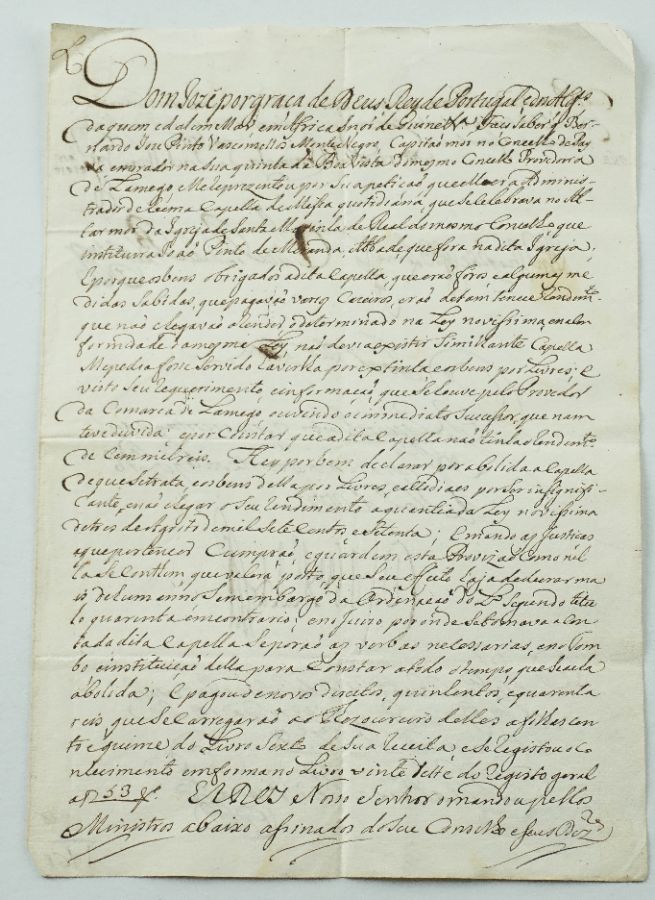 Dom Jozé por graça de Deus Rey de Portugal, e dos Alg.es
daquem e dalem Mar em Africa Snõr de Guine &.a Faço saber q̃ Ber-
nardo Joze Pinto Vasconcellos Monte Negro, Capitaõ mór no Concelho de Pay
va e morador na sua quinta da Boa Vista do mesmo Concelho Provedoria
de Lamego, Me Reprezentou por sua petiçaõ que elle era Adminis-
trador de huma Capella de Missa quotidiana que se celebrava no Al-
tar mór da Igreja de Santa Marinha de Real do mesmo Concelho que
instituira Joaõ Pinto de Miranda, Abbade que fora na dita Igreja,
E porque os bens obrigados a dita Capella, que eraõ foros e algumas me
didas sabidas, que pagavaõ varios Cazeiros, eraõ de taõ tenue Rendim.to
que naõ chegavaõ a render o determinado na Ley novissima, em con
formidade da mesma Ley naõ devia existir Similhante Capella
Me pedia fosse Servido haverlha por extinta e os bens por Livres; e
visto seu requerimento e informaçaõ que se houve pelo Provedor
da Comarca de Lamego ouvindo o immediato Sucessor, que nam
teve duvida e por Constar que a dita Capella naõ tinha o Rendim.to
de Cem mil reis. Hey por bem declarar por abolida a Capella
de que se trata, e os bens della por Livres, e alludiaes por ser insignifi-
cante, e naõ chegar o Seu rendimento a quantia da Ley novissima
de tres de Agosto de mil Sete Centos e Setenta; E mando as Justiças
a que pertencer Cumpraõ, e guardem esta Provizaõ como nel
la se Contem, que valerá posto que seu effeito haja de durar ma
is de hum anno, Sem embargo da Ordenaçaõ do L.o Segundo titu
lo quarenta em contrario; e no Juizo por onde se tomava a Con
ta da dita Capella se poraõ as verbas necessarias, e no Tom
bo e instituiçaõ della para Constar a todo o tempo que he a ella
abolida; E pagou de novos direitos, quinhentos, e quarenta
reis que se carregaraõ ao Thezoureiro delles a folhas cen
to e quinze do Livro Sexto de Sua Receita e se registou o Co
nhecimento em forma no Livro vinte Sete do registo geral
a f 53 v. EL REY Nosso Senhor o mandou pellos
Ministros abaixo assinados do Seu Concelho e seus Dez.res